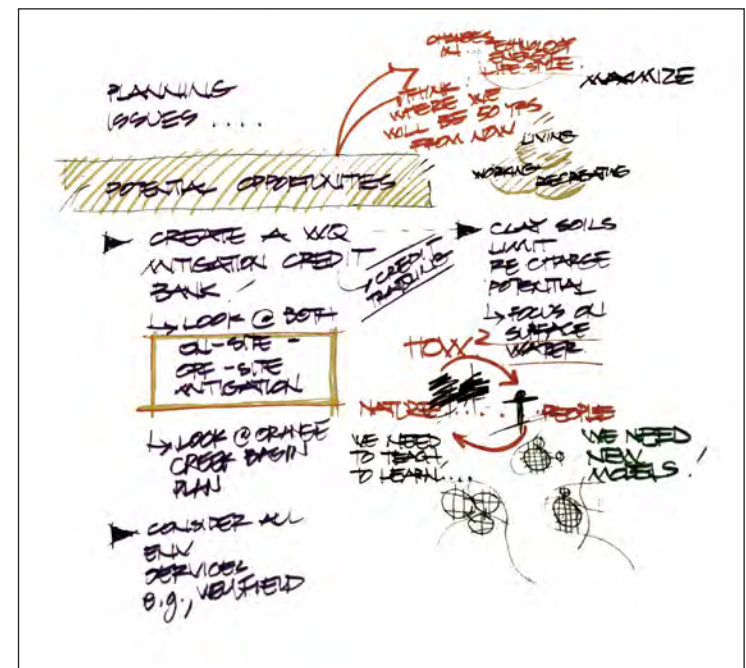 PLANNING
ISSUES ....
CHANGES
IN TECHNOLOGY
ENERGY
LIFE STYLE
THINK
WHERE WE
WILL BE 50 YRS
FROM NOW
MAXIMIZE
LIVING
WORKING
RECREATING
POTENTIAL OPPORTUNITIES
CREATE A WQ
MITIGATION CREDIT
BANK!
CREDIT
TRADING
LOOK @ BOTH
ON-SITE -
OFF-SITE
MITIGATION
LOOK @ ORANGE
CREEK BASIN
PLAN
CONSIDER ALL
ENV
SERVICES
e.g., WELLFIELD
CLAY SOILS
LIMIT
RE CHARGE
POTENTIAL
FOCUS ON
SURFACE
WATER
NATURE .... PEOPLE
WE NEED
TO TEACH
TO LEARN...
WE NEED
NEW
MODELS!